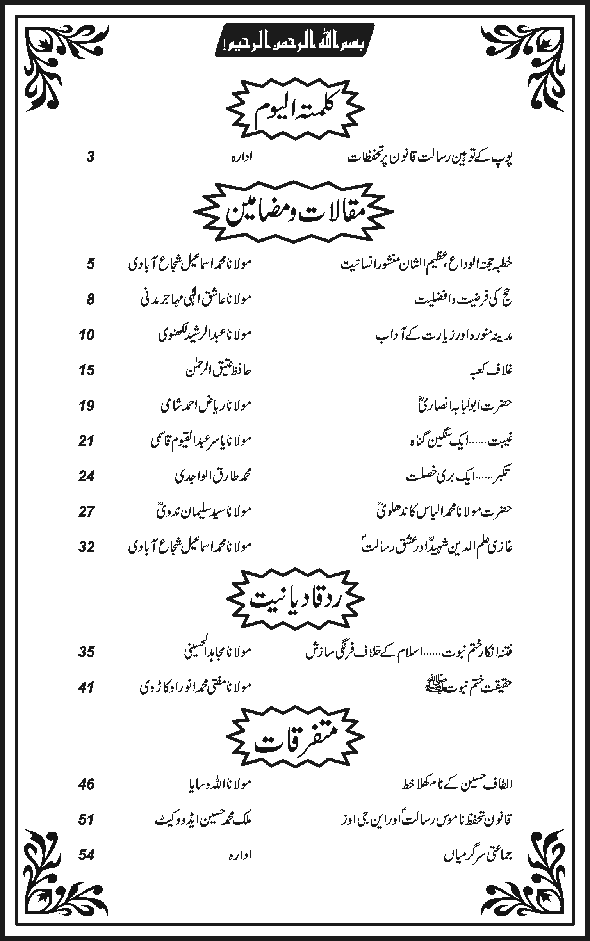 بسم اللہ الرحمن الرحیم!
کلمتہ الیوم
پوپ کے توہین رسالت قانون پر تحفظات ادارہ 3
مقالات و مضامین
خطبہ حجتہ الوداع، عظیم الشان منشور انسانیت مولانا محمد اسماعیل شجاع آبادی 5
حج کی فرضیت و افضلیت مولانا عاشق الٰہی مہاجر مدنی 8
مدینہ منورہ اور زیارت کے آداب مولانا عبدالرشید لکھنوی 10
غلاف کعبہ حافظ عتیق الرحمٰن 15
حضرت ابولبابہ انصاریؓ مولانا ریاض احمد شامی 19
غیبت...... ایک سنگین گناہ مولانا یاسر عبدالقیوم قاسمی 21
تکبر...... ایک بری خصلت محمد طارق الواجدی 24
حضرت مولانا محمد الیاس کاندھلویؒ مولانا سید سلیمان ندویؒ 27
غازی علم الدین شہیدؒ اور عشق رسالتؐ مولانا محمد اسماعیل شجاع آبادی 32
رد قادیانیت
فتنہ انکار ختم نبوت...... اسلام کے خلاف فرنگی سازش مولانا مجاہد الحسینی 35
حقیقت ختم نبوت ﷺ مولانا مفتی محمد انور اوکاڑوی 41
متفرقات
الطاف حسین کے نام کھلا خط مولانا اللہ وسایا 46
قانون تحفظ ناموس رسالتؐ اور این جی اوز ملک محمد حسین ایڈووکیٹ 51
جماعتی سرگرمیاں ادارہ 54